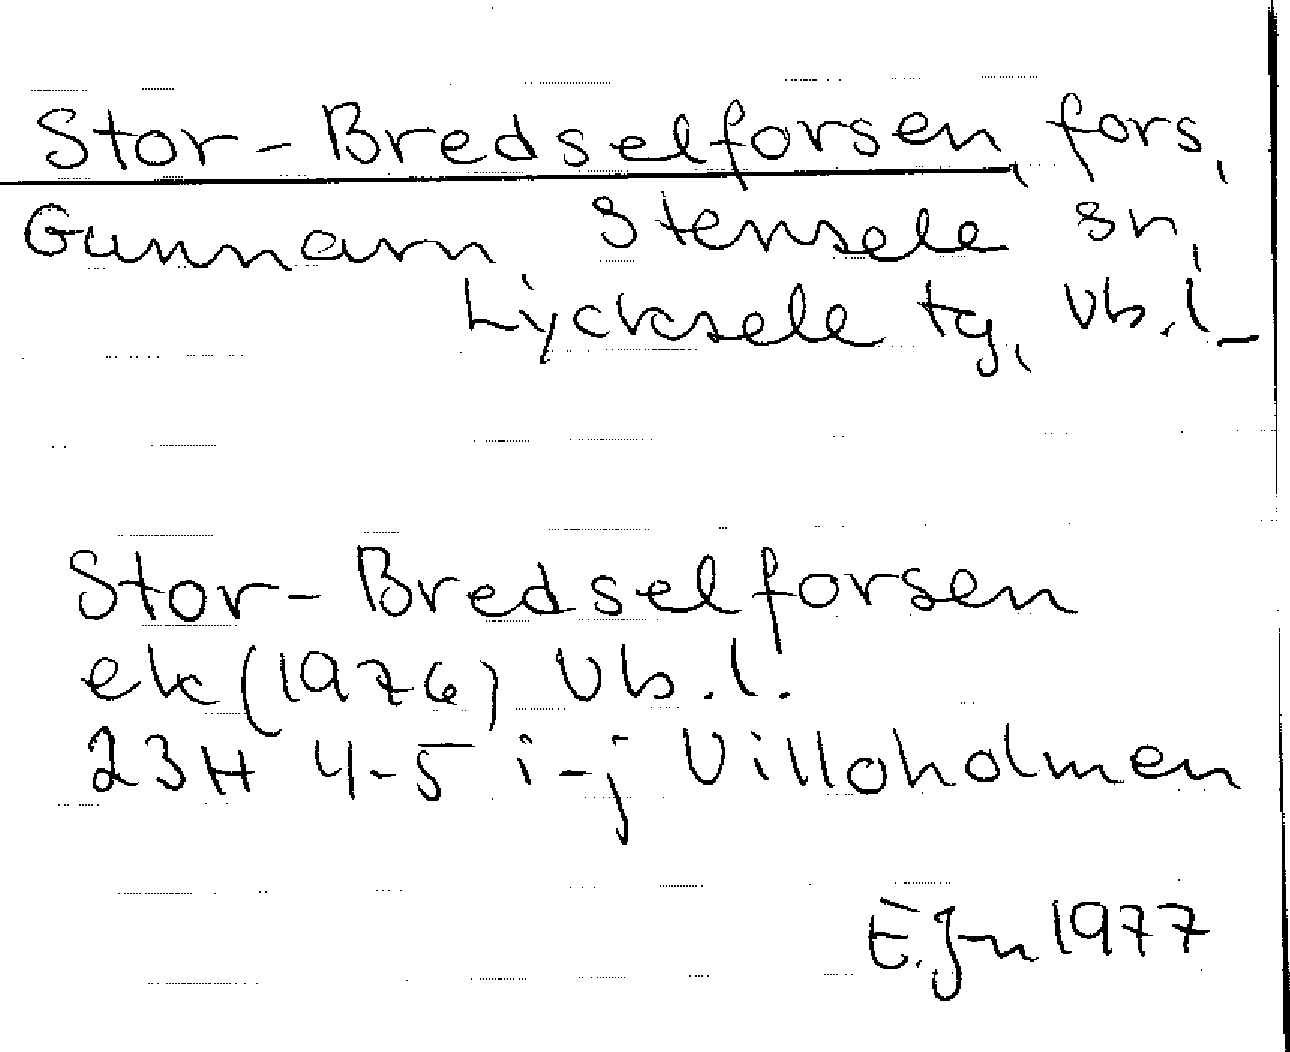 Stor-Bredselforsen, fors,
Gunnarn, Stensele sn,
Lycksele tg, Vb.l.
Stor-Bredselforsen
ek (1976) Vb.l.
23H 4-5 i-j Villoholmen
E.J-n 1977